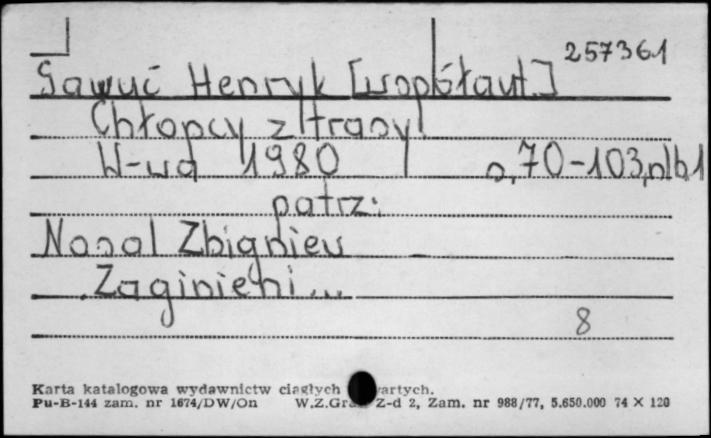 257361
Gawuć Henryk [współaut.]
Chłopcy z trasy
W-wa 1980 s. 70-103, nlb 1
patrz:
Nasal Zbigniew
Zaginieni...
8
Karta katalogowa wydawnictw ciągłych wartych.
Pu-B-144 zam. nr 1674/DW/On W.Z.Gra Z-d 2, Zam. nr 988/77, 5.650.000 74 × 120